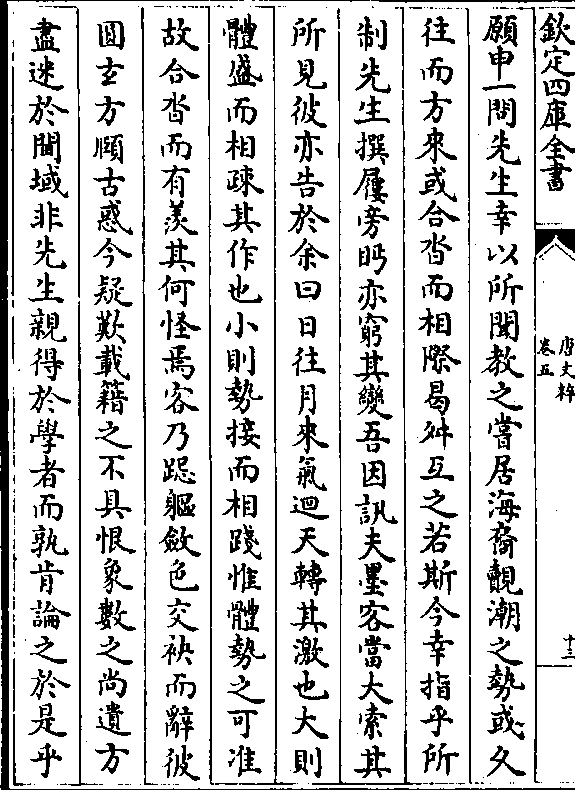 欽定四庫全書
唐文粹
卷五
十二
願申一問先生幸以所聞教之嘗居海裔覿潮之勢或久
往而方來或合沓而相際曷舛互之若斯今幸指乎所
制先生撰屨旁眄亦窮其變吾因訊夫墨客當大索其
所見彼亦告於余曰日往月來氣迴天轉其激也大則
體盛而相疎其作也小則勢接而相踐惟體勢之可准
故合沓而有羨其何怪焉客乃跽軀斂色交袂而辭彼
圓玄方頤古惑今疑歎載籍之不具恨象數之尚遺方
盡迷於閫域非先生親得於學者而孰肯論之於是乎